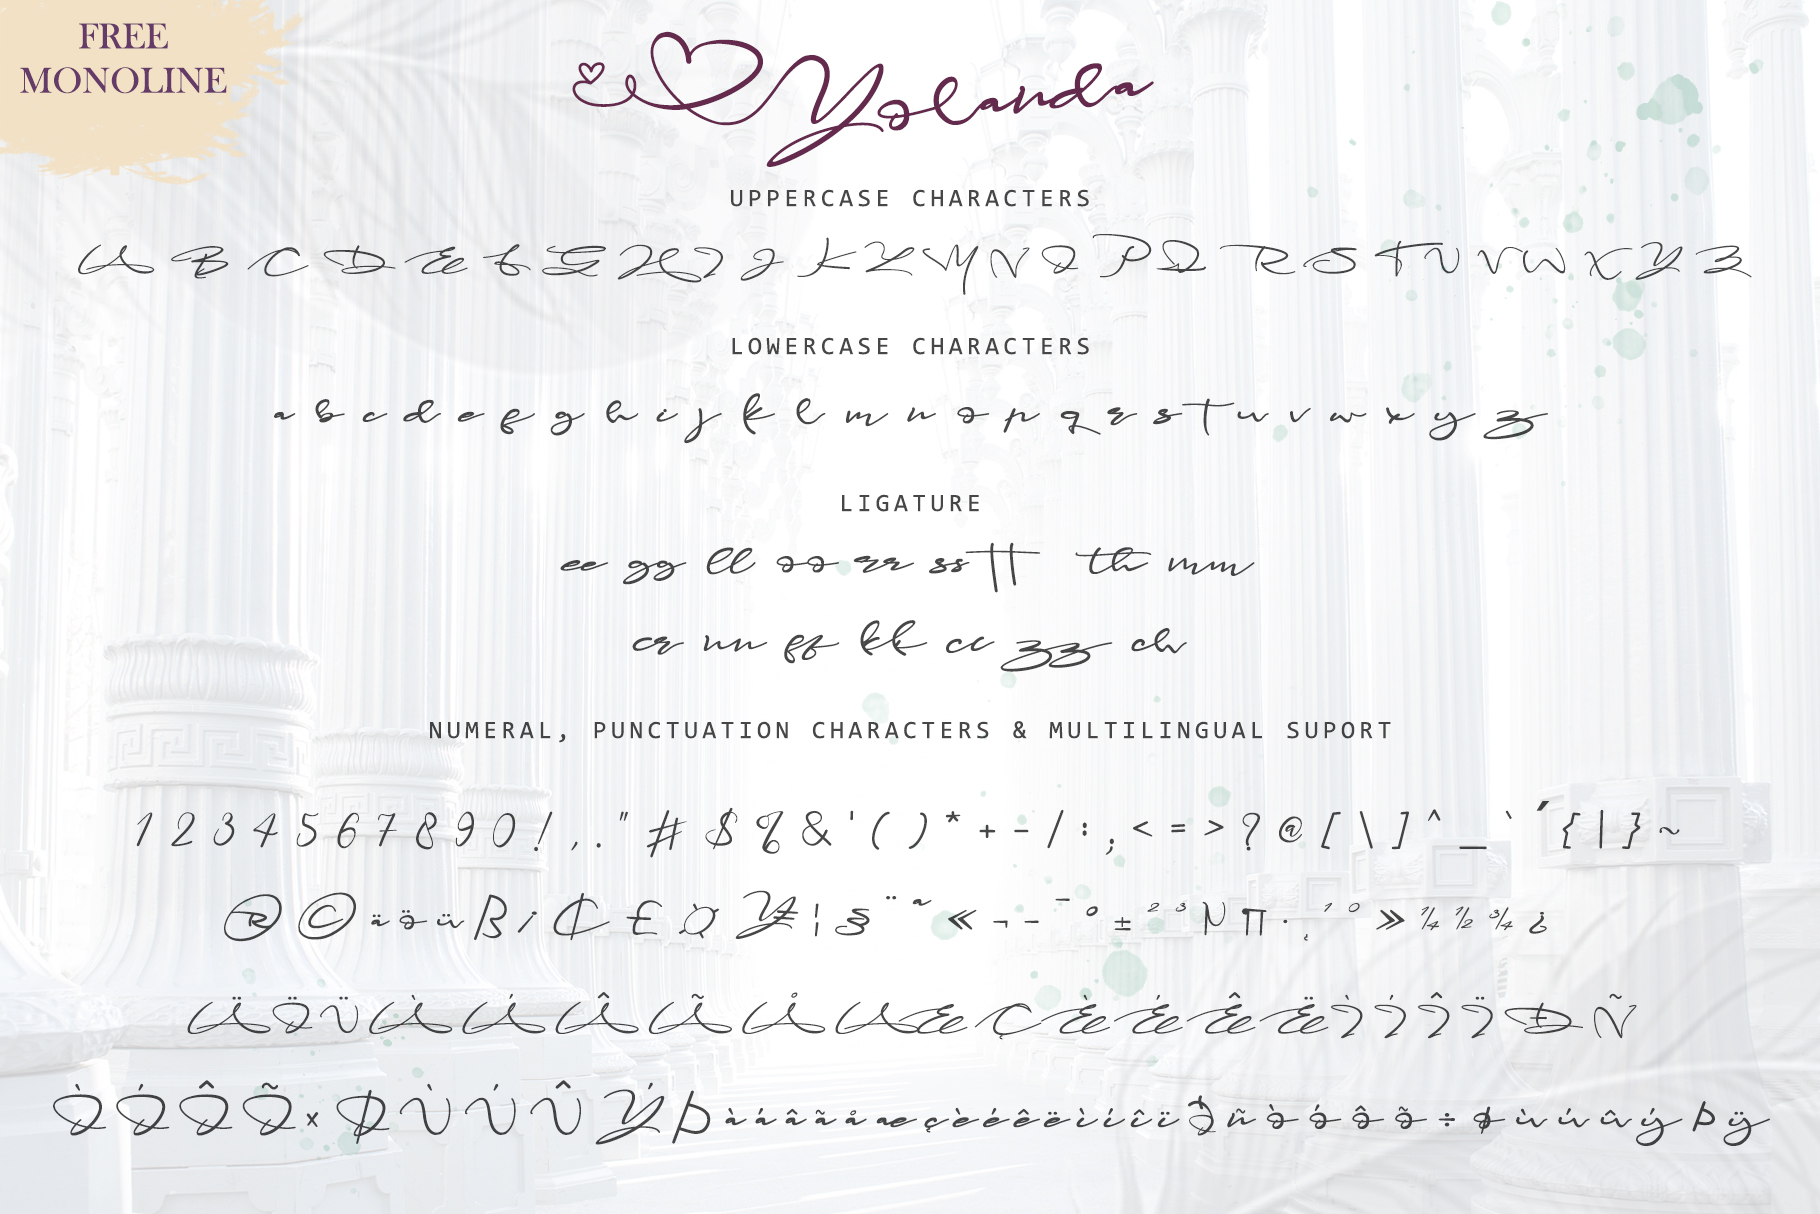 FREE
MONOLINE
Yolanda
UPPERCASE CHARACTERS
A B C D E F G H I J K L M N O P Q R S T U V W X Y Z
LOWERCASE CHARACTERS
a b c d e f g h i j k l m n o p q r s t u v w x y z
LIGATURE
ee gg ll oo rr ss tt th mm
cr nn ff kk cc zz ch
NUMERAL, PUNCTUATION CHARACTERS & MULTILINGUAL SUPORT
1 2 3 4 5 6 7 8 9 0 ! , . " # $ % & ' ( ) * + - / : ; < = > ? @ [ \ ] ^ _ ` ´ { | } ~
® © ä ö ü ß ¡ ₵ £ ¤ ¥ ¦ § ¨ ª « ¬ - ¯ ° ± ² ³ µ ¶ · ¸ ¹ º » ¼ ½ ¾ ¿
Ä Ö Ü À Á Â Ã Å Æ Ç È É Ê Ë Ì Í Î Ï Ð Ñ
Ò Ó Ô Õ × Ø Ù Ú Û Ý Þ à á â ã å æ ç è é ê ë ì í î ï ð ñ ò ó ô õ ÷ ø ù ú û ý þ ÿ